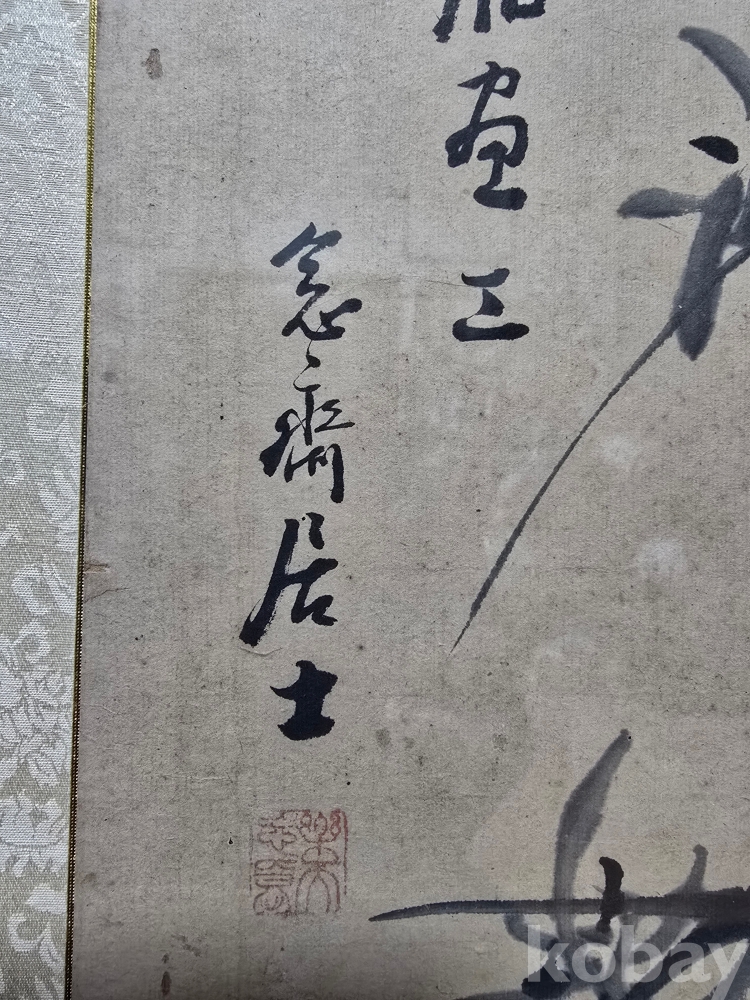 画正
念齋居士
kobay